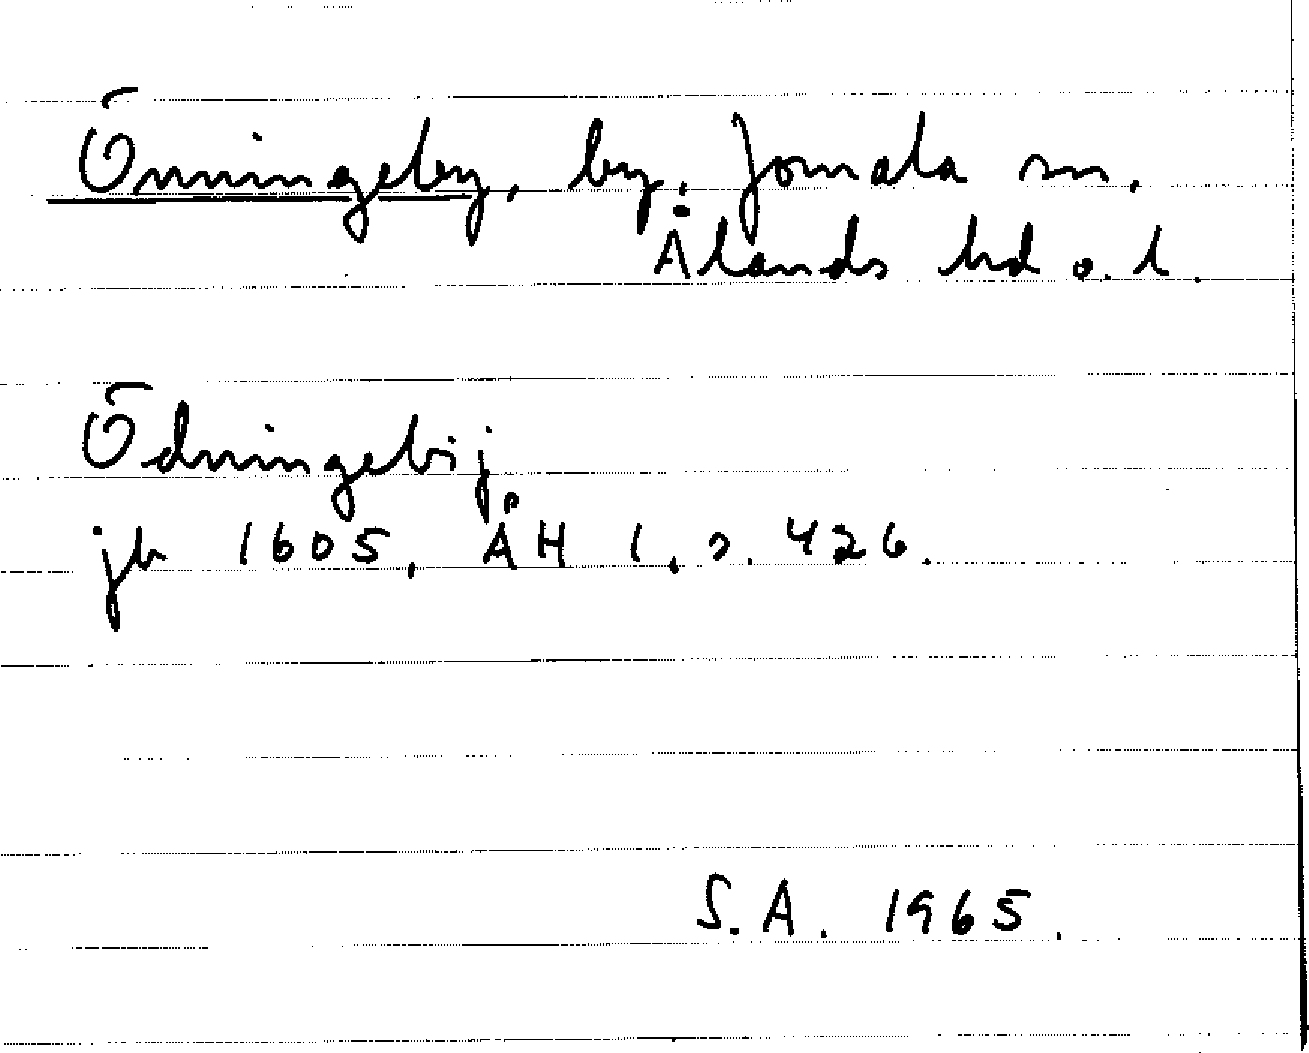 Önningeby, by. Jomala sn.
Ålands hd o. l.
Ödningebij
jb 1605, ÅH 1, s. 426.
S.A. 1965.